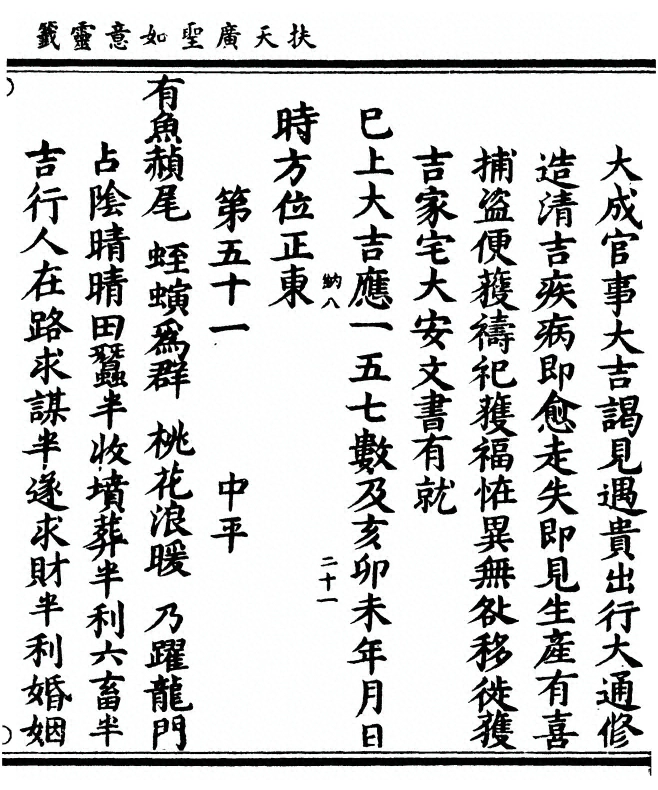 扶天廣聖如意靈籤
大成官事大吉謁見遇貴出行大通修
造清吉疾病即愈走失即見生產有喜
捕盜便獲禱祀獲福恠異無咎移徙獲
吉家宅大安文書有就
巳上大吉應一五七數及亥卯未年月日
納八
二十一
時方位正東
第五十一 中平
有魚赬尾 蛭螾為群 桃花浪暖 乃躍龍門
占陰晴晴田蠶半收墳葬半利六畜半
吉行人在路求謀半遂求財半利婚姻